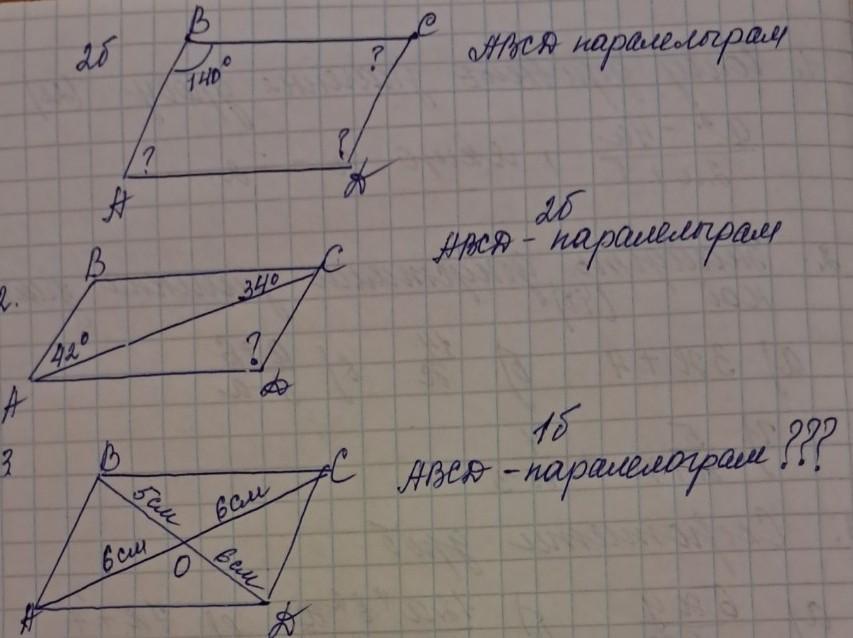 2б
B
C
140°
?
ABCD паралелыграм
?
?
A
D
2б
ABCD - паралелыграм
2.
B
C
34°
42°
?
A
D
3
1б
ABCD - паралелограм ???
B
C
5см
6см
6см
O
6см
A
D